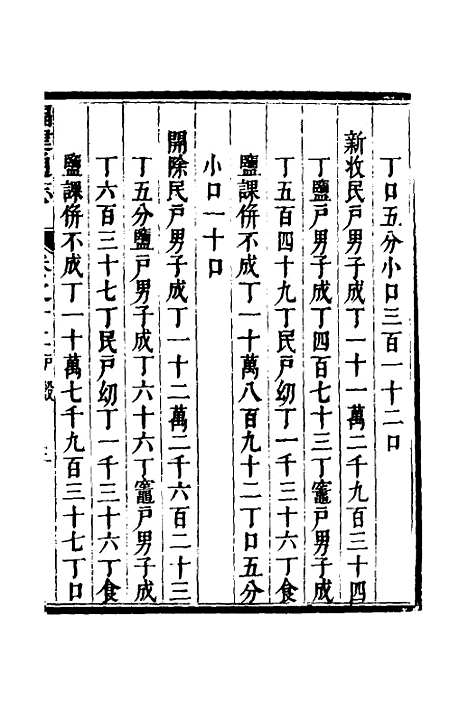 丁口五分小口三百一十二口
新收民戸男子成丁一十一萬二千九百三十四
丁鹽戸男子成丁四百七十三丁竈戸男子成
丁五百四十九丁民戸幼丁一千三十六丁食
鹽課併不成丁一十萬八百九十二丁口五分
小口一十口
開除民戸男子成丁一十二萬二千六百二十三
丁五分鹽戸男子成丁六十六丁竈戸男子成
丁六百三十七丁民戸幼丁一千三十六丁食
鹽課併不成丁一十萬七千九百三十七丁口